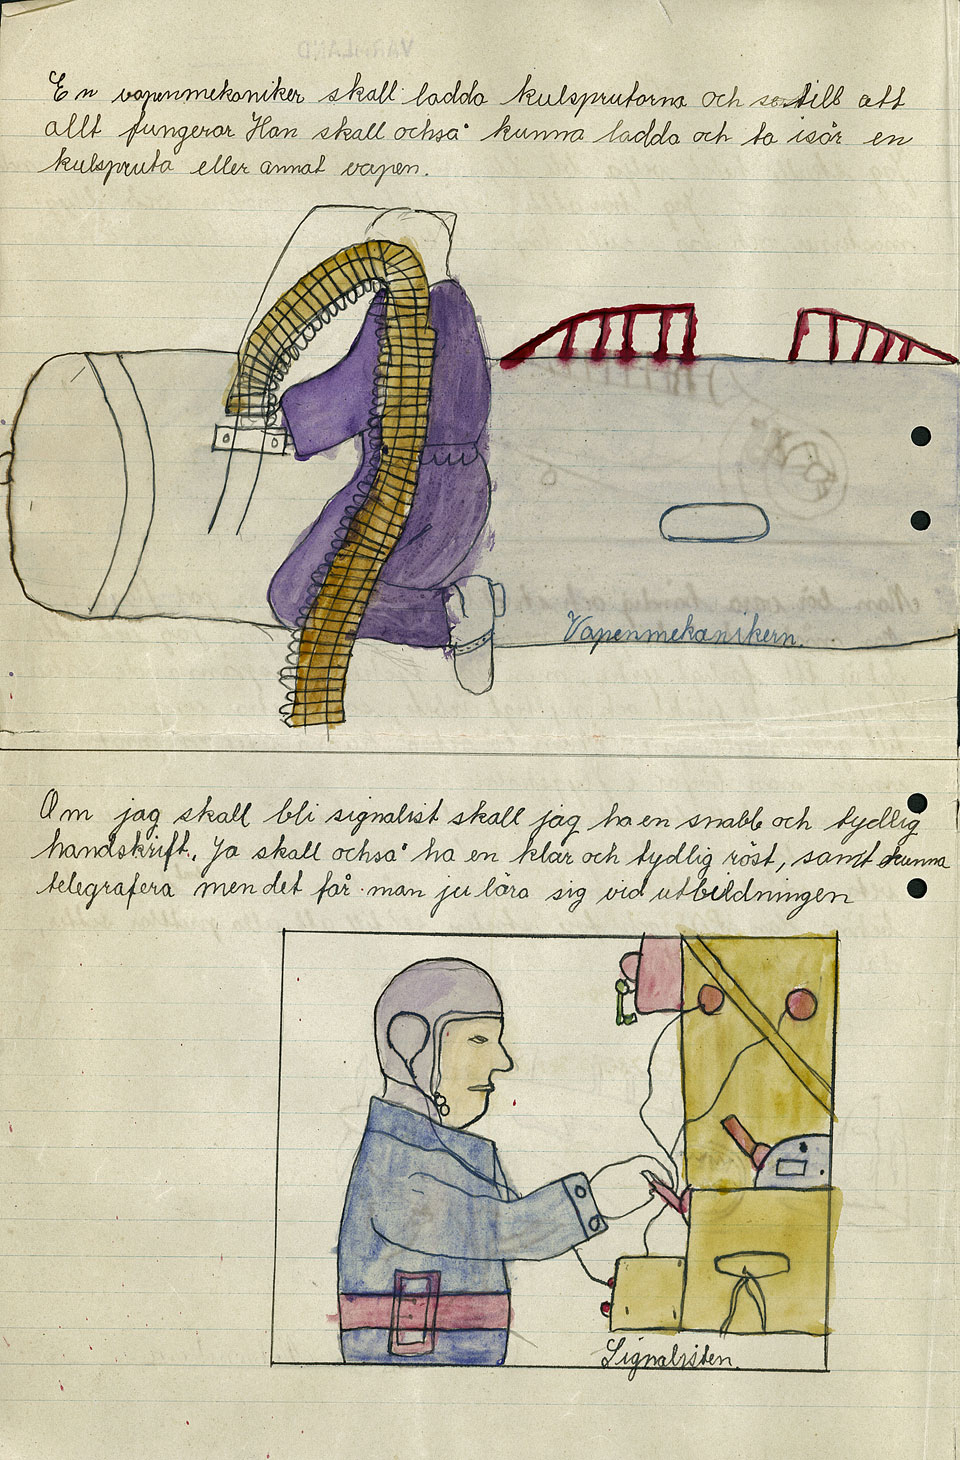 VÄRMLAND
En vapenmekaniker skall ladda kulsprutorna och se till att
allt fungerar Han skall ochså kunna ladda och ta isär en
kulspruta eller annat vapen.
Vapenmekanikern.
Om jag skall bli signalist skall jag ha en snabb och tydlig
handskrift. Ja skall ochså ha en klar och tydlig röst, samt kunna
telegrafera men det får man ju lära sig vid utbildningen
Signalisten.